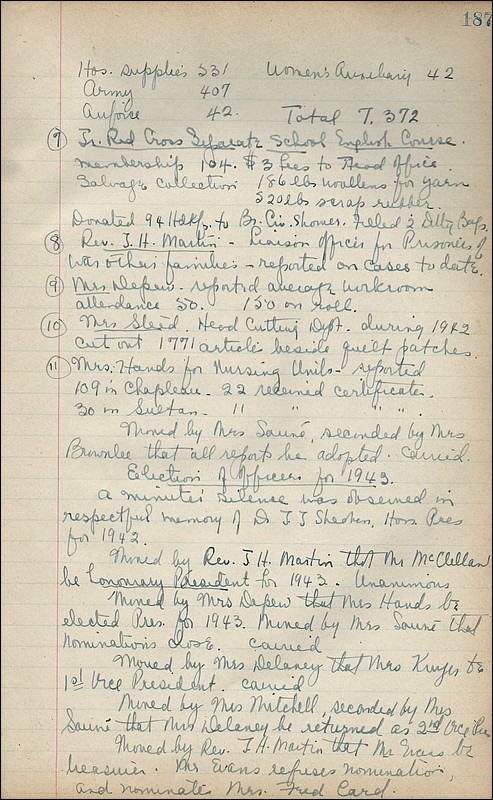 187
Hos. supplies 531 Women's Auxiliary 42
Army 407
Airforce 42. Total T. 372
7 Jr. Red Cross Separate School English Course.
membership 104. $3 fees to Head Office
Salvage collection 186 lbs woollens for yarn
520 lbs scrap rubber.
Donated 94 Hdkfs. to Br. Civ. Shower. Filled 2 Ditty Bags.
8 Rev. J. H. Martin - Liaison officer for Prisoners of
War & their families - reported on cases to date.
9 Mrs Depew - reported average workroom
attendance 50. 150 on roll.
10 Mrs Steed. Head Cutting Dept. during 1942
cut out 1771 articles beside quilt patches.
11 Mrs. Hands for Nursing Units - reported
109 in Chapleau - 22 received certificates.
30 in Sultan - " " " " .
Moved by Mrs Sauné, seconded by Mrs
Brownlee that all reports be adopted. carried.
Election of Officers for 1943.
A minute's silence was observed in
respectful memory of Dr. J. J. Sheahan, Hon. Pres
for 1942.
Moved by Rev. J. H. Martin that Mr McClellan
be Honorary President for 1943. Unanimous
Moved by Mrs Depew that Mrs Hands be
elected Pres. for 1943. Moved by Mrs Sauné that
nominations close. carried
Moved by Mrs Delaney that Mrs Kruger be
1st Vice President. carried
Moved by Mrs Mitchell, seconded by Mrs
Sauné that Mrs Delaney be returned as 2nd Vice Pres
Moved by Rev. J. H. Martin that Mr Evans be
treasurer. Mr Evans refuses nomination,
and nominates Mrs. Fred Card.